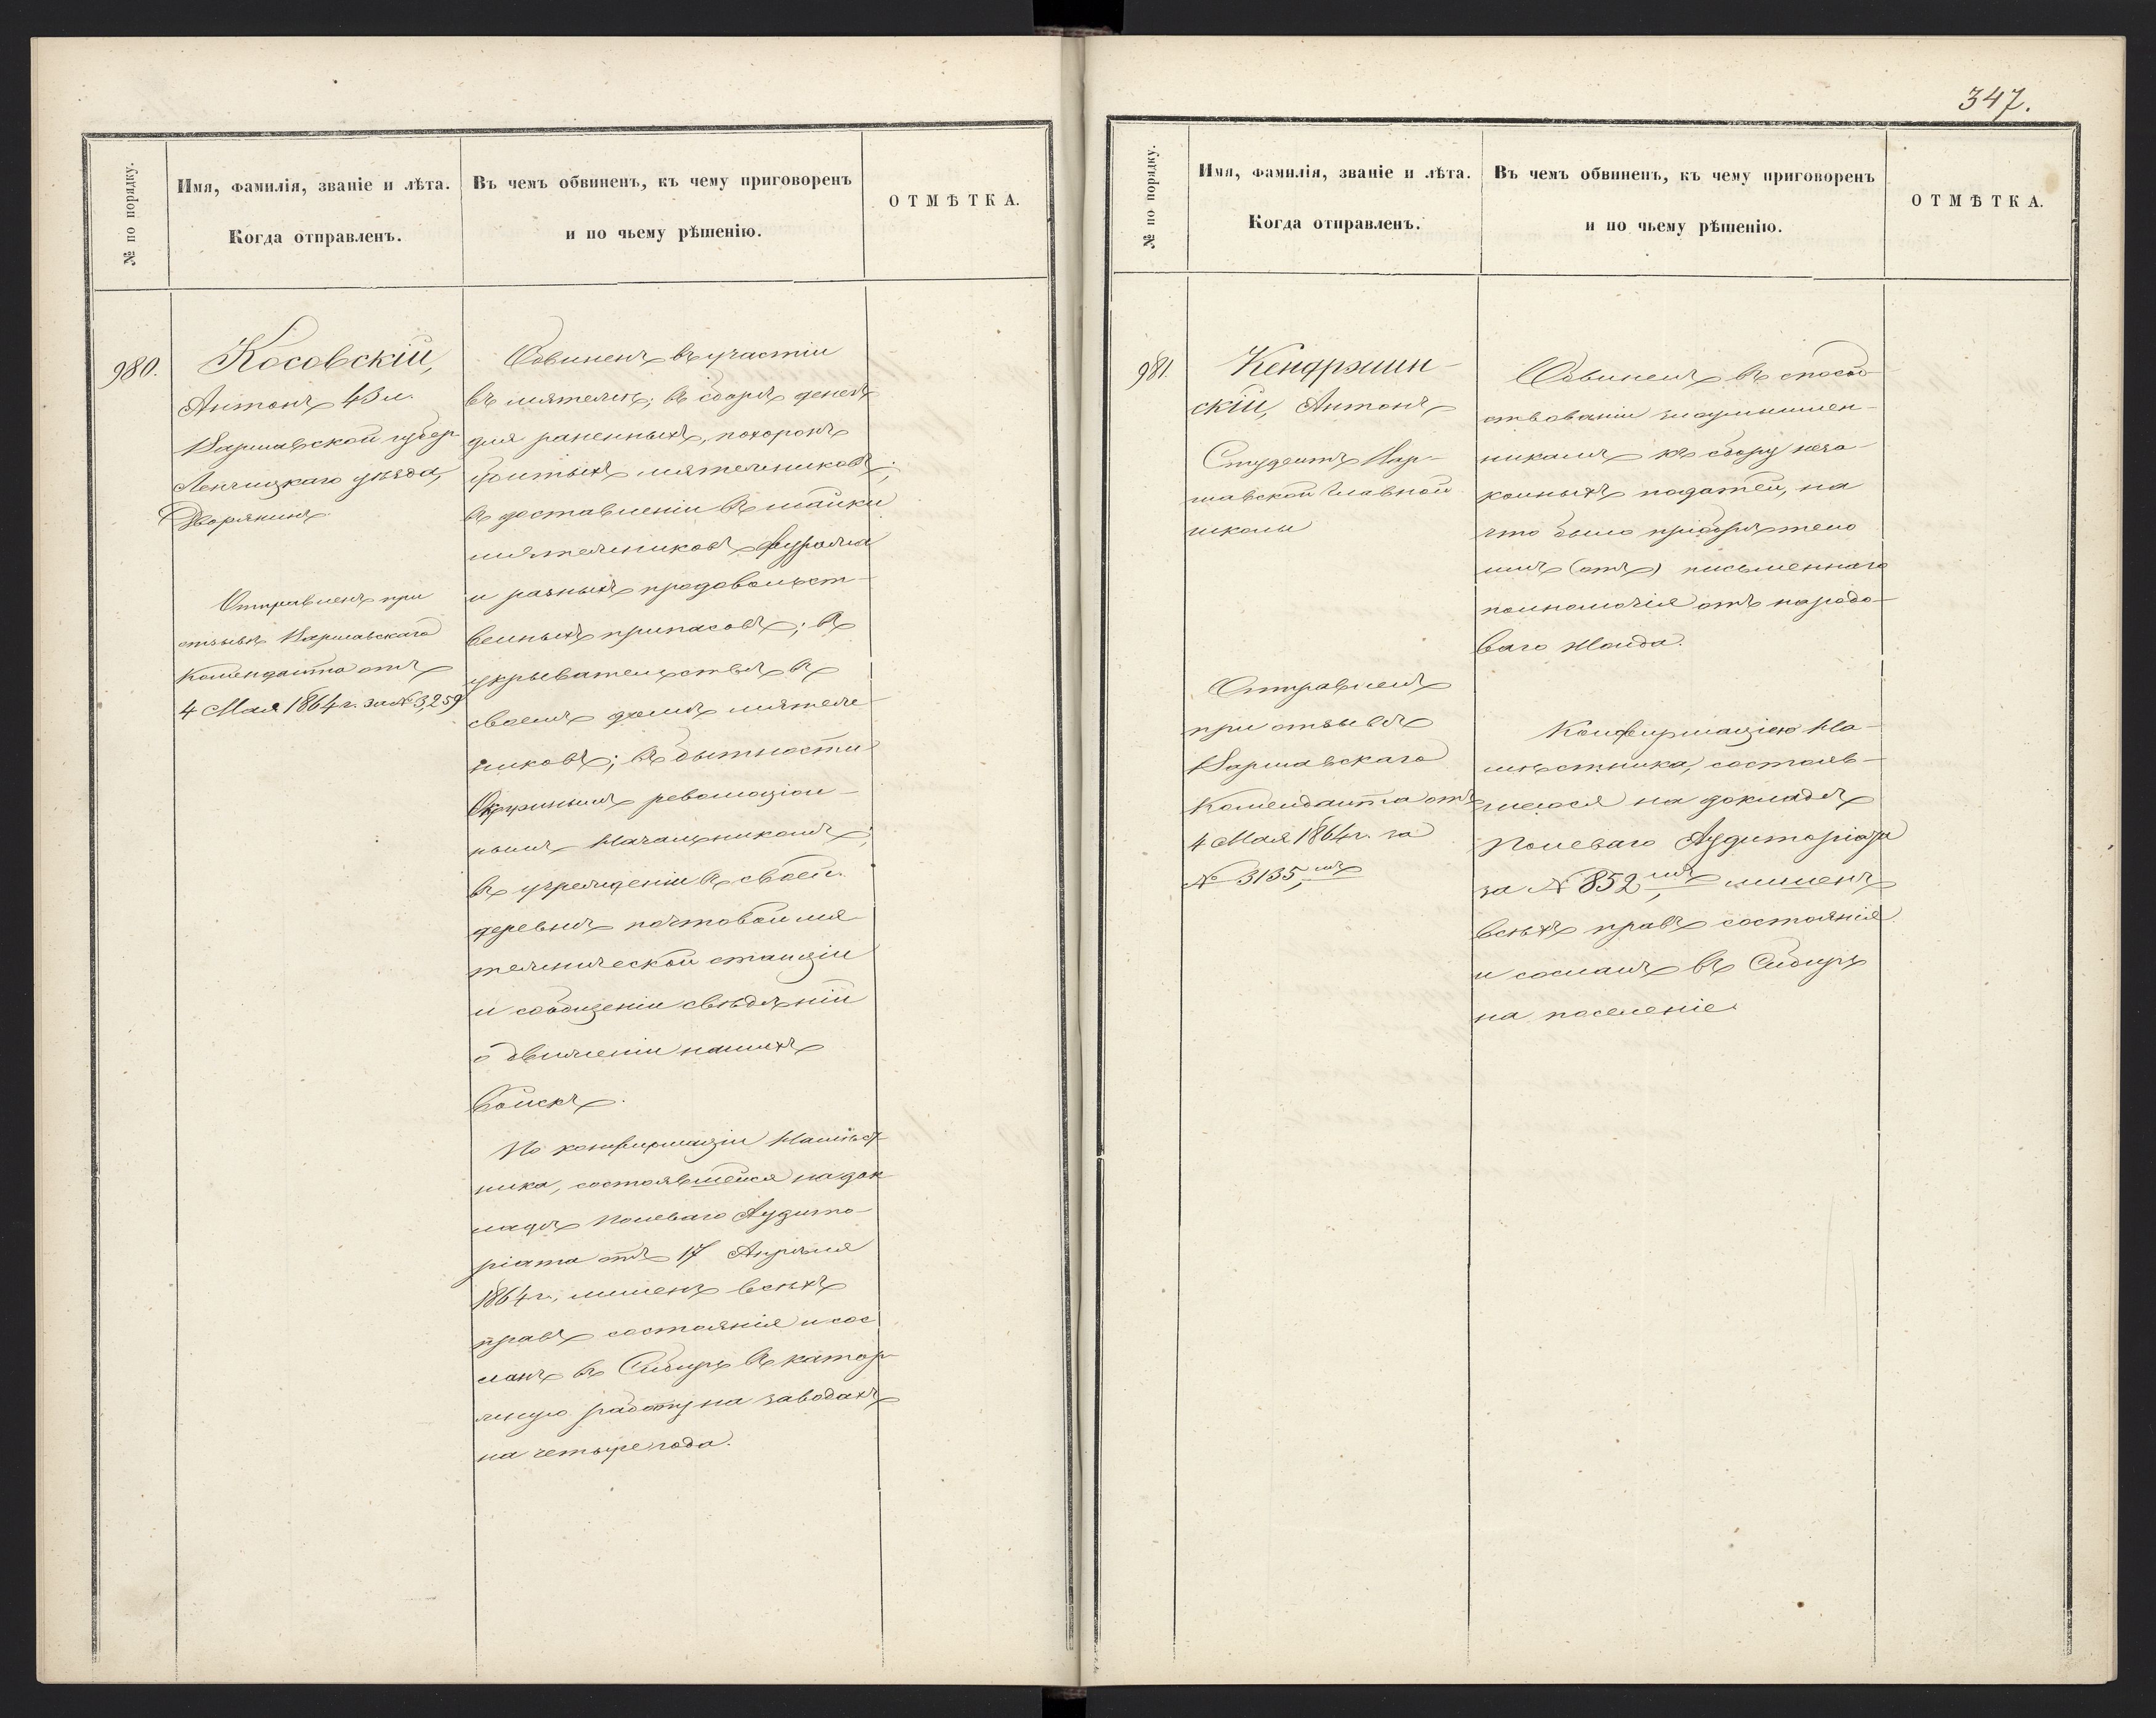 347.
№ по порядку.
Имя, фамилія, званіе и лѣта.
Когда отправленъ.
Въ чемъ обвиненъ, къ чему приговоренъ
и по чьему рѣшенію.
ОТМѢТКА.
980.
Косовскій,
Антонъ 43 л.
Варшавской губер.
Ленчицкаго уѣзда,
Дворянинъ.
Отправленъ при
отзывѣ Варшавскаго
Коменданта отъ
4 Мая 1864 г. за № 3,259
Обвиненъ въ участіи
въ мятежѣ; въ сборѣ денегъ
для раненныхъ, похоронѣ
убитыхъ мятежниковъ;
въ доставленіи въ шайки
мятежниковъ фуража
и разныхъ продовольст-
венныхъ припасовъ; въ
укрывательствѣ въ
своемъ домѣ мятеж-
никовъ; въ бытности
Окружнымъ революціон-
нымъ Начальникомъ;
въ учрежденіи въ своей
деревнѣ почтовой мя
тежнической станціи
и сообщеніи свѣдѣній
о движеніи нашихъ
войскъ.
По конфирмаціи Намѣст-
ника, состоявшейся на док
ладѣ Полеваго Аудито-
ріата отъ 17 Апрѣля
1864 г., лишенъ всѣхъ
правъ состоянія и сос
ланъ въ Сибирь въ катор-
жную работу на заводахъ
на четыре года.
№ по порядку.
Имя, фамилія, званіе и лѣта.
Когда отправленъ.
Въ чемъ обвиненъ, къ чему приговоренъ
и по чьему рѣшенію.
ОТМѢТКА.
981.
Кендржин-
скій, Антонъ
Студентъ Вар-
шавской Главной
школы
Отправленъ
при отзывѣ
Варшавскаго
Коменданта отъ
4 Мая 1864 г. за
№ 3135,мъ
Обвиненъ въ способ-
ствованіи злоумышлен-
никамъ къ сбору неза-
конныхъ податей, на
что было пріобрѣтено
имъ (отъ) письменнаго
полномочія отъ народо-
ваго Жонда.
Конфирмаціею На-
мѣстника, состояв-
шеюся на докладѣ
Полеваго Аудиторіата
за № 852,мъ лишенъ
всѣхъ правъ состоянія
и сосланъ въ Сибирь
на поселеніе.